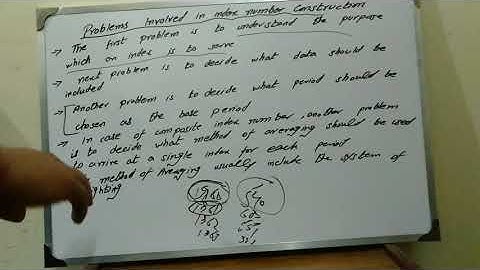 Problems Involved in index number Construction
→ The first problem is to understand the purpose
which an index is to serve
→ next problem is to decide what data should be
included
Another problem is to decide what period should be
chosen as the base period
→ In case of composite index number, another problem
is to decide what method of averaging should be used
to arrive at a single index for each period
method of Averaging usually include the system of